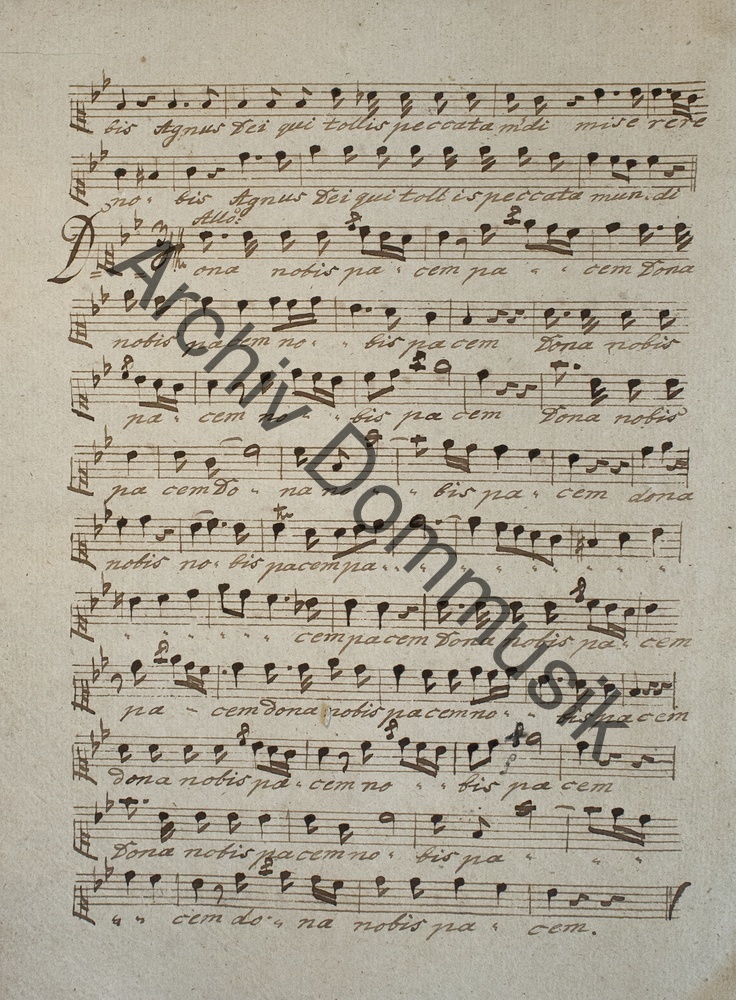 bis Agnus Dei qui tollis peccata mũdi miserere
no - bis Agnus Dei qui toll is peccata mun - di
Allo:
Dona nobis pa - cem pa - - cem Dona
nobis pacem no - - bis pacem Dona nobis
pa - cem no - - bis pa cem Dona nobis
pa cem Do - na no - - bis pa - cem dona
nobis no - bis pacem pa - - - - - - - -
- - - - - - cem pacem Dona nobis pa - cem
pa - cem dona nobis pacem no - - bis pacem
dona nobis pa - cem no - - bis pa cem
Dona nobis pacem no - bis pa - - -
- - cem do - na nobis pa - cem.
Archiv Dommusik